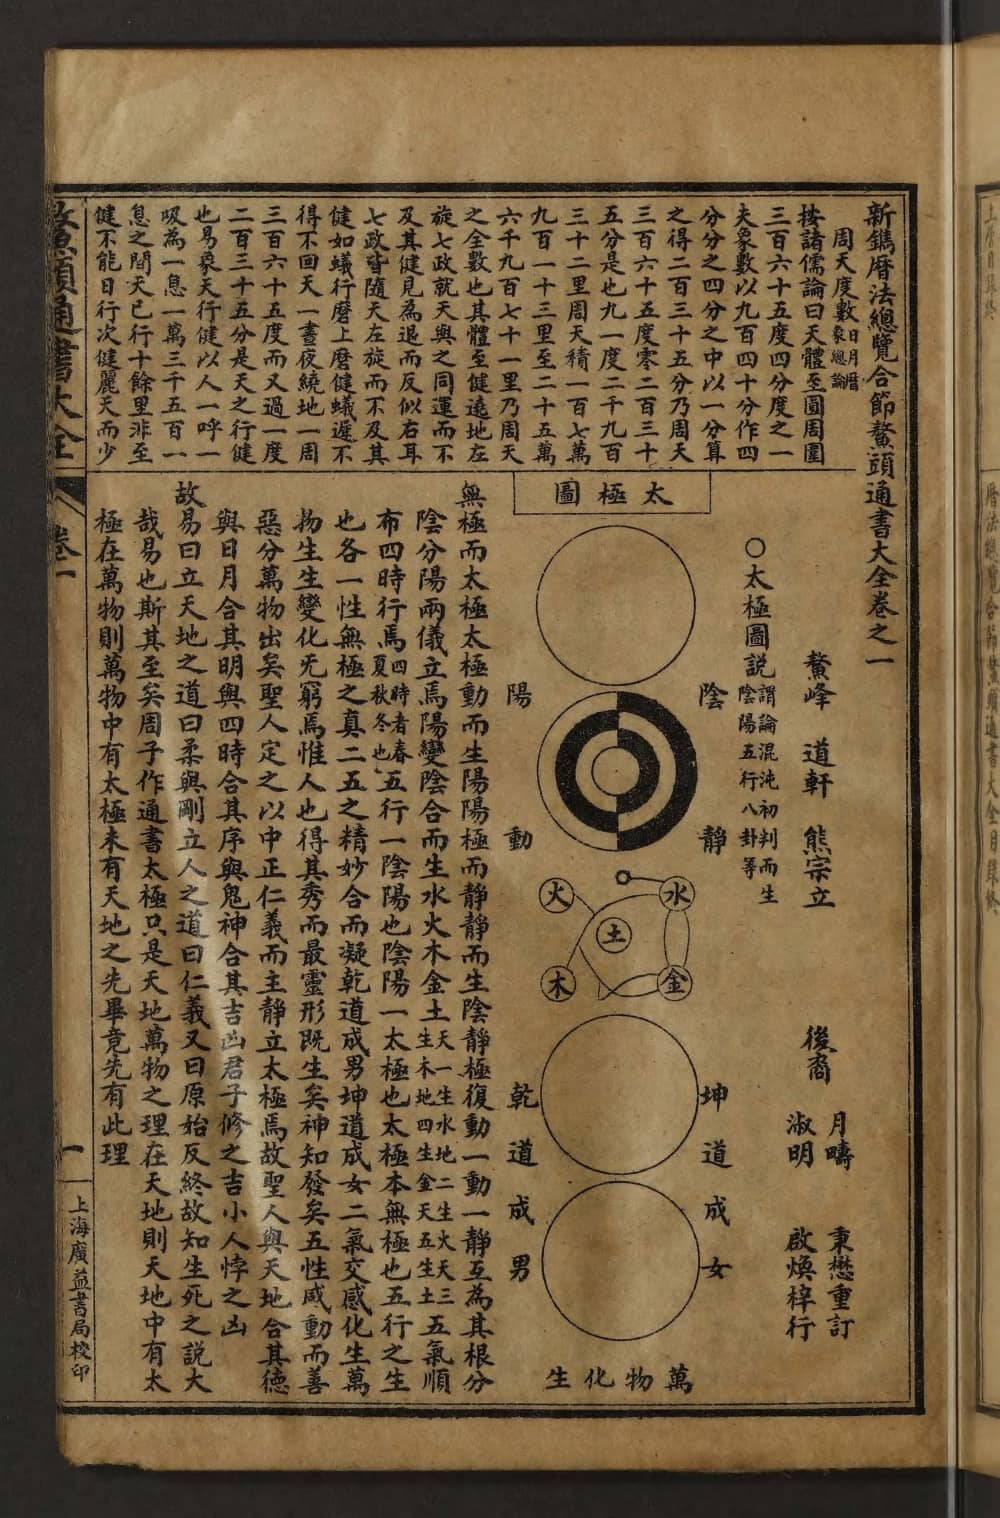 新鐫曆法總覽合節鰲頭通書大全卷之一
鰲峰 道軒 熊宗立
後裔
月疇 秉懋重訂
淑明 啟煥梓行
周天度數日月曆象總論
按諸儒論曰天體至圓周圍
三百六十五度四分度之一
夫象數以九百四十分作四
分分之四分之中以一分算
之得二百三十五分乃周天
三百六十五度零二百三十
五分是也九一度二千九百
三十二里周天積一百七萬
九百一十三里至二十五萬
六千九百七十一里乃周天
之全數也其體至健遶地左
旋七政就天與之同運而不
及其健見為退而反似右耳
七政皆隨天左旋而不及其
健如蟻行磨上磨健蟻遲不
得不回天一晝夜繞地一周
三百六十五度而又過一度
二百三十五分是天之行健
也易象天行健以人一呼一
吸為一息一萬三千五百一
息之間天已行十餘里非至
健不能日行次健麗天而少
〇太極圖說謂論混沌初判而生陰陽五行八卦等
太極圖
陰靜
陽動
水
火
土
金
木
坤道成女
乾道成男
萬物化生
無極而太極太極動而生陽陽極而靜靜而生陰靜極復動一動一靜互為其根分
陰分陽兩儀立焉陽變陰合而生水火木金土天一生水地二生火天三生木地四生金天五生土五氣順
布四時行焉四時者春夏秋冬也五行一陰陽也陰陽一太極也太極本無極也五行之生
也各一性無極之真二五之精妙合而凝乾道成男坤道成女二氣交感化生萬
物生生變化无窮焉惟人也得其秀而最靈形既生矣神知發矣五性感動而善
惡分萬物出矣聖人定之以中正仁義而主靜立太極焉故聖人與天地合其德
與日月合其明與四時合其序與鬼神合其吉凶君子修之吉小人悖之凶
故易曰立天地之道曰柔與剛立人之道曰仁義又曰原始反終故知生死之說大
哉易也斯其至矣周子作通書太極只是天地萬物之理在天地則天地中有太
極在萬物則萬物中有太極未有天地之先畢竟先有此理
鰲頭通書大全
卷一
一
上海廣益書局校印